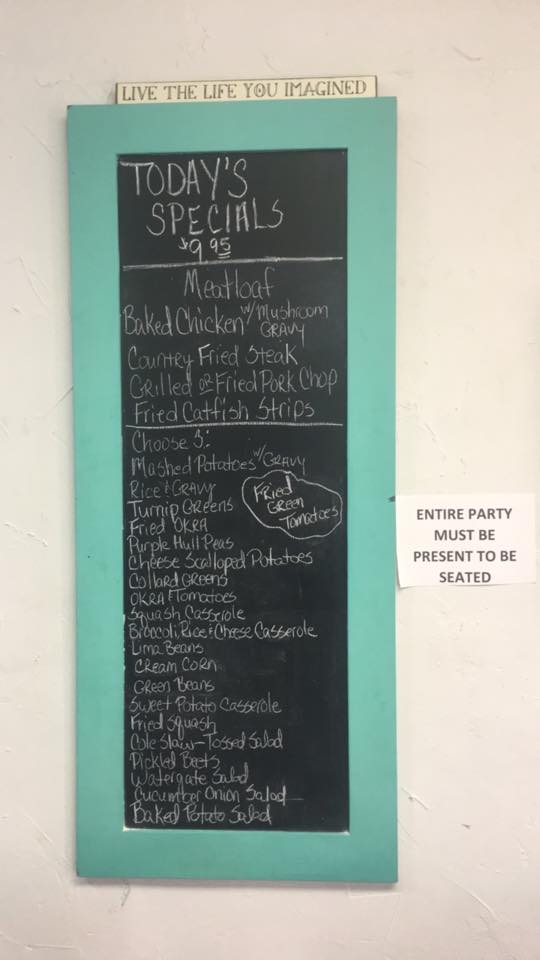 LIVE THE LIFE YOU IMAGINED
TODAY'S
SPECIALS
$9.95
Meatloaf
Baked Chicken w/ Mushroom
GRAVY
Country Fried Steak
Grilled or Fried Pork Chop
Fried Catfish Strips
Choose 3:
Mashed Potatoes w/ GRAVY
Rice & GRAVY
Turnip Greens
Fried OKRA
Purple Hull Peas
Cheese Scalloped Potatoes
Collard Greens
OKRA & Tomatoes
Squash Casserole
Broccoli Rice & Cheese Casserole
Lima Beans
CREAM CORN
Green Beans
Sweet Potato Casserole
Fried Squash
Cole Slaw - Tossed Salad
Pickled Beets
Watergate Salad
Cucumber Onion Salad
Baked Potato Salad
Fried
Green
Tomatoes
ENTIRE PARTY
MUST BE
PRESENT TO BE
SEATED